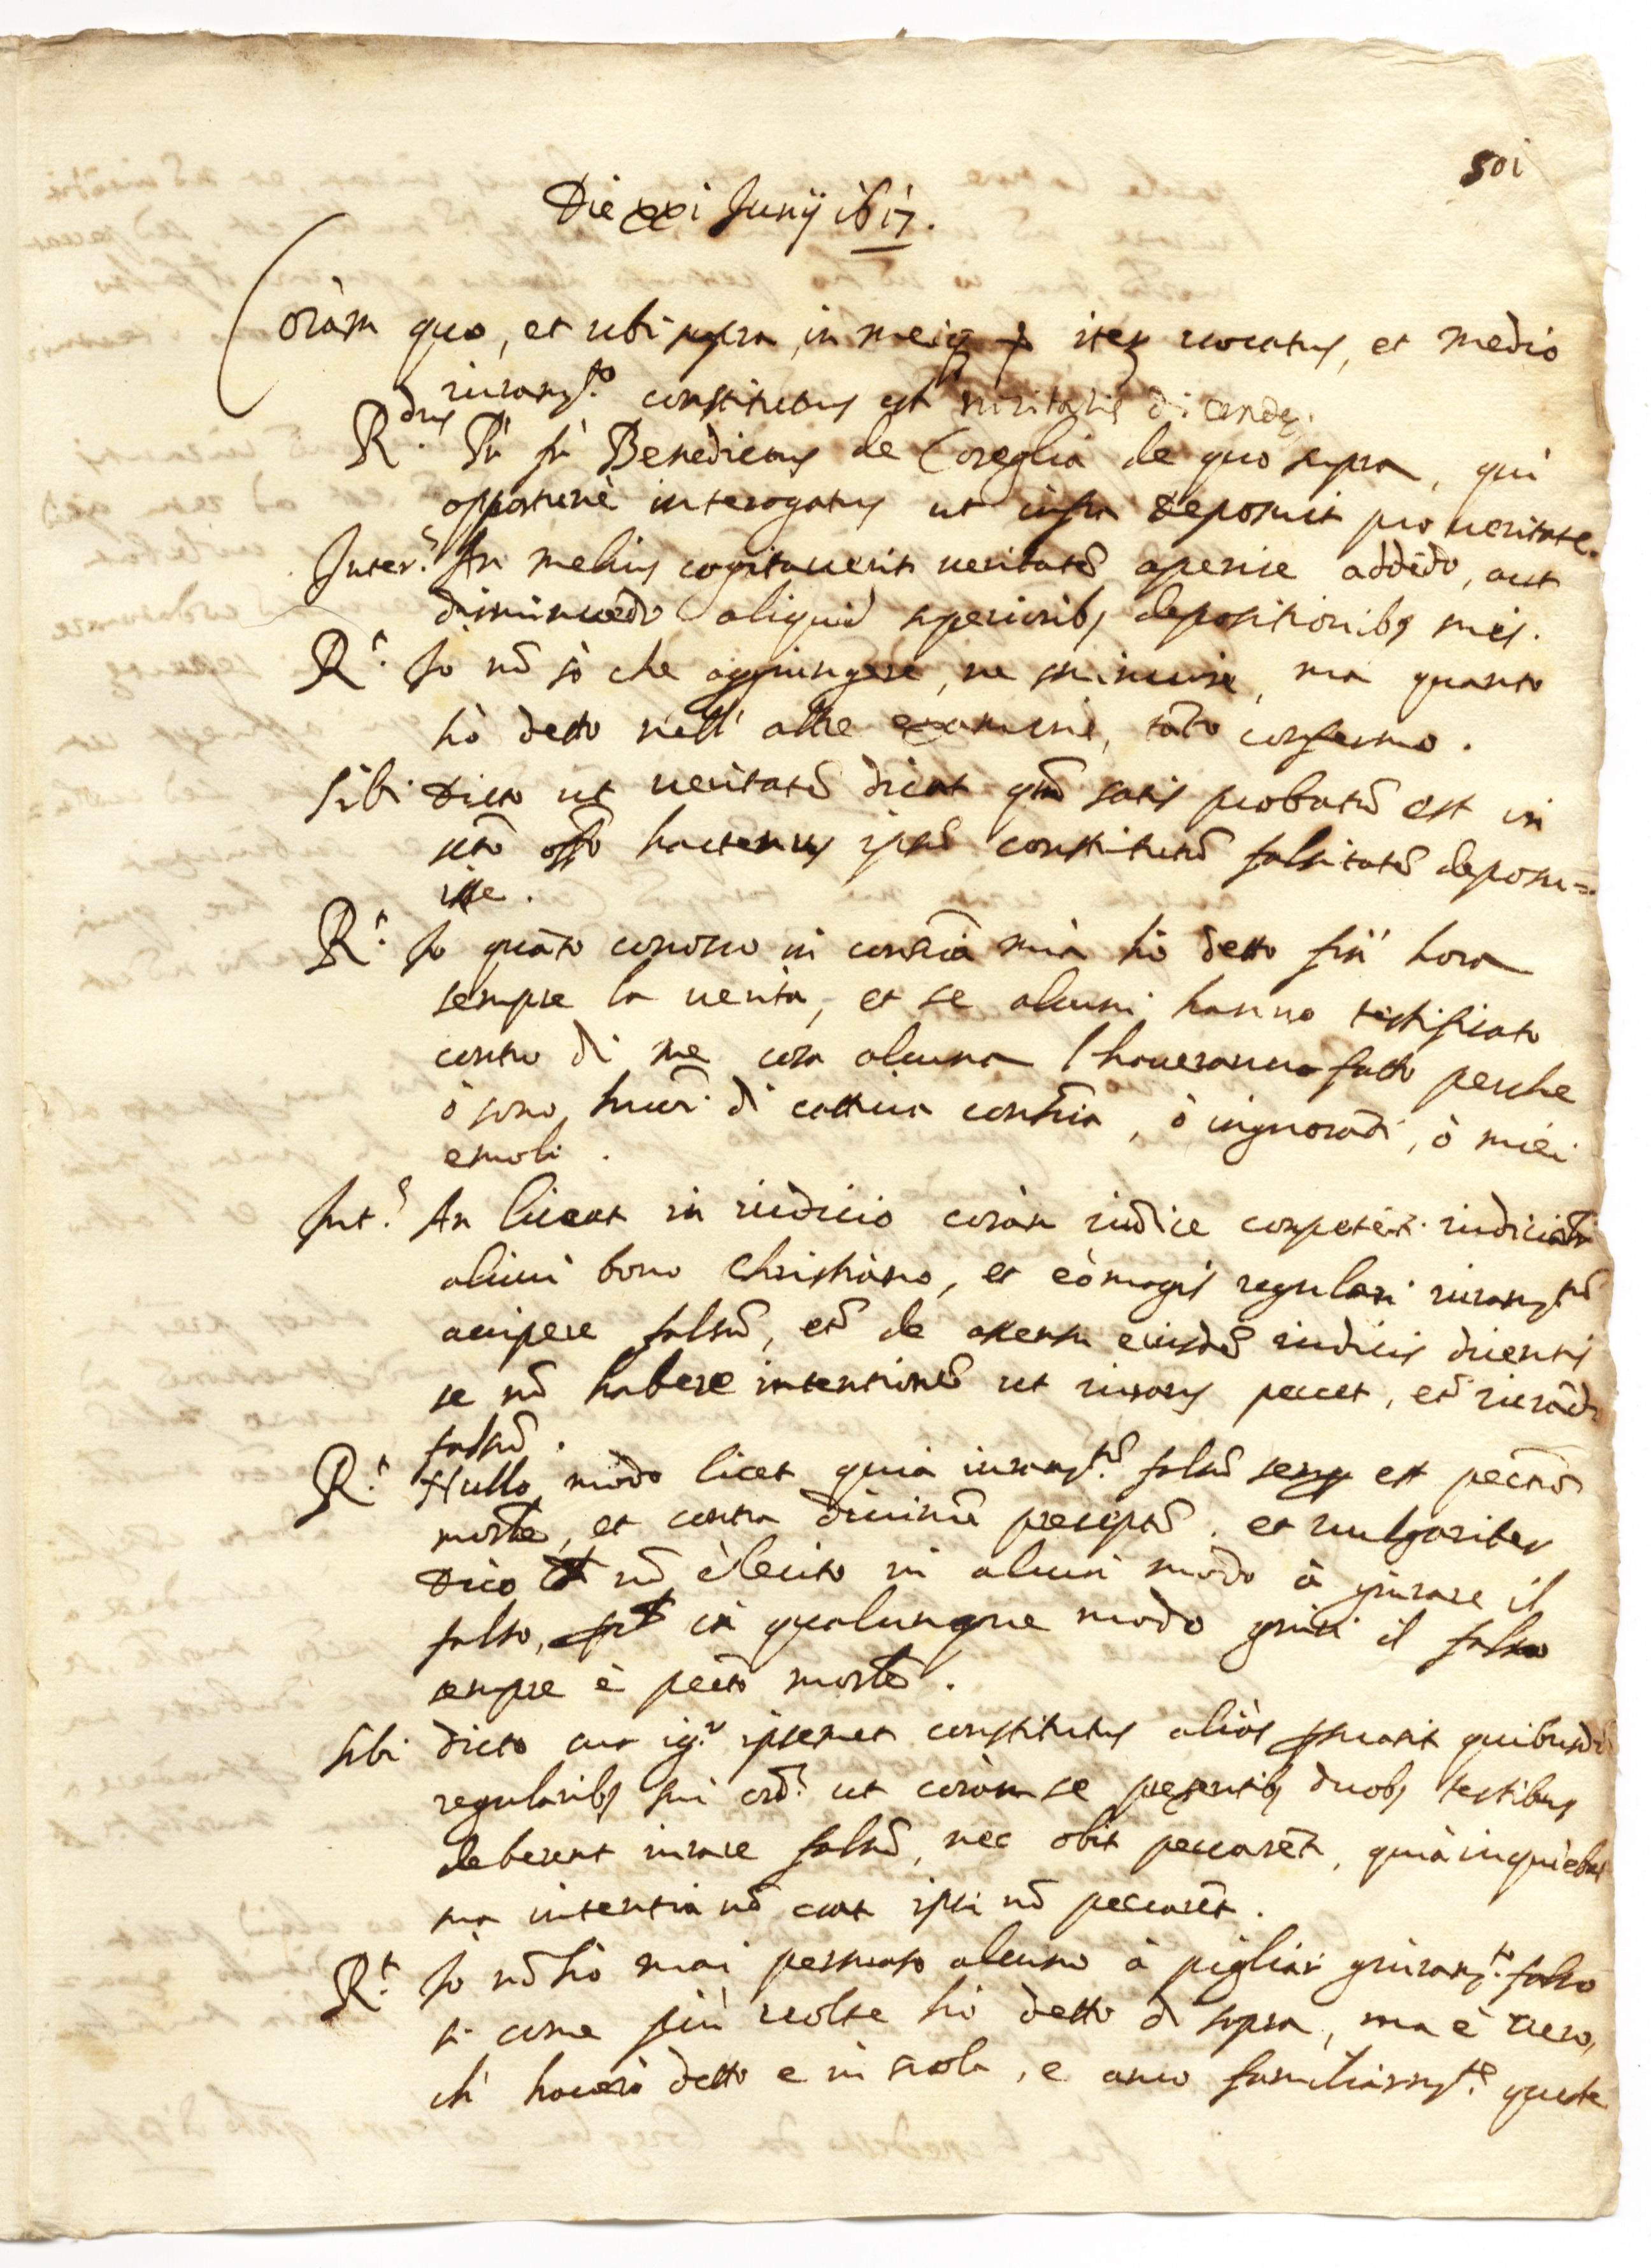 501
Die xxi Junij 1617.
Coram quo, et ubi supra, in meiq; p iteq uocatus, et medio
iuram.to constitutus est ueritatis dicendę.
R.dus P'a fr' Benedictus de Coreglia de quo supra, qui
opportunè interogatus ut infra deposuit pro ueritate.
Inter.s An melius cogitauerit ueritatē aperire addēdo, aut
diminuēdo aliquid superioribq depositionibq suis.
R.t Io nō sò che aggiungere, ne sminuire, ma quanto
hò detto nell' altre examine, tāto confermo.
Sibi Dicto ut ueritatē dicat qm̄ satis probatū est in
sctō offō hactenus ipsū constitutū falsitatē deposu=
isse.
R.t Io quāto conosco in consciā mia hò detto fin' hora
sempre la uerita, et se alcuni hanno testificato
contro di me cosa alcuna l'haueranno fatto perche
ò sono huoī di cattiua consciā, ò ingnorāti, ò miei
emoli.
Int.s An liceat in iudicio coram iudice conpetēti iudiciāti
alicui bono Christiano, et eò magis regulari iuram.tū
accipere falsū, etā de assensu eiusdē iudicis dicentis
se nō habere intentionē ut iurans peccet, etā iurādo
falsū.
R.t Nullo modo licet quia iuram.tū falsū semp est peccātū
mortle, et contra diuinū preceptū. et uulgariter
Dico nō è lecito in alcun modo à giurare il
falso, in qualunque modo giuri il falso
sempre è peccto mortle.
Sibi dicto cur ig.r ipsemet constitutus aliàs suasit quibusdā
regularibq sui ord.s ut coram se presentibq duobq testibus
deberent iurare falsū, nec obit peccarēt, quia inquiebat
sua intentia nō erat ipsi nō peccarēt.
R.t Io nō hò mai persuaso alcuno à pigliar giuram.to falso
si come più uolte hò detto di sopra, ma è uero,
ch' hauerò detto e in scola, e anco familiarm.te queste